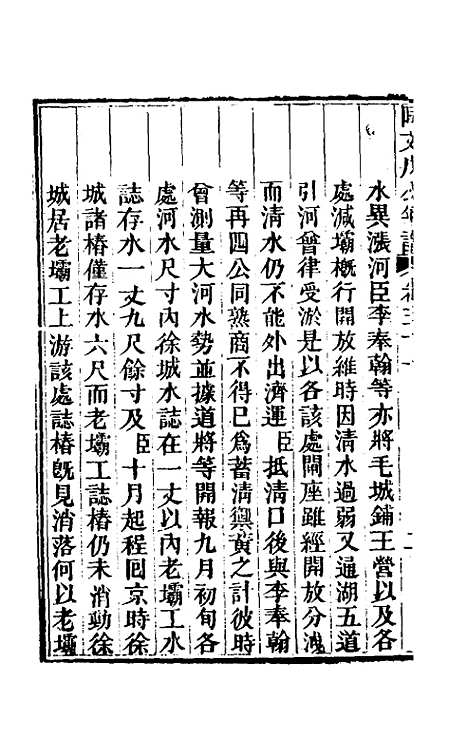 阿文成公年譜 卷三十一
水異漲河臣李奉翰等亦將毛城鋪王營以及各
處減壩概行開放維時因清水過弱又通湖五道
引河曾律受淤是以各該處閘座雖經開放分洩
而清水仍不能外出濟運臣抵清口後與李奉翰
等再四公同熟商不得已為蓄清禦黃之計彼時
曾測量大河水勢並據道將等開報九月初旬各
處河水尺寸內徐城水誌在一丈以內老壩工水
誌存水一丈九尺餘寸及臣十月起程回京時徐
城諸樁僅存水六尺而老壩工誌樁仍未消動徐
城居老壩工上游該處誌樁旣見消落何以老壩